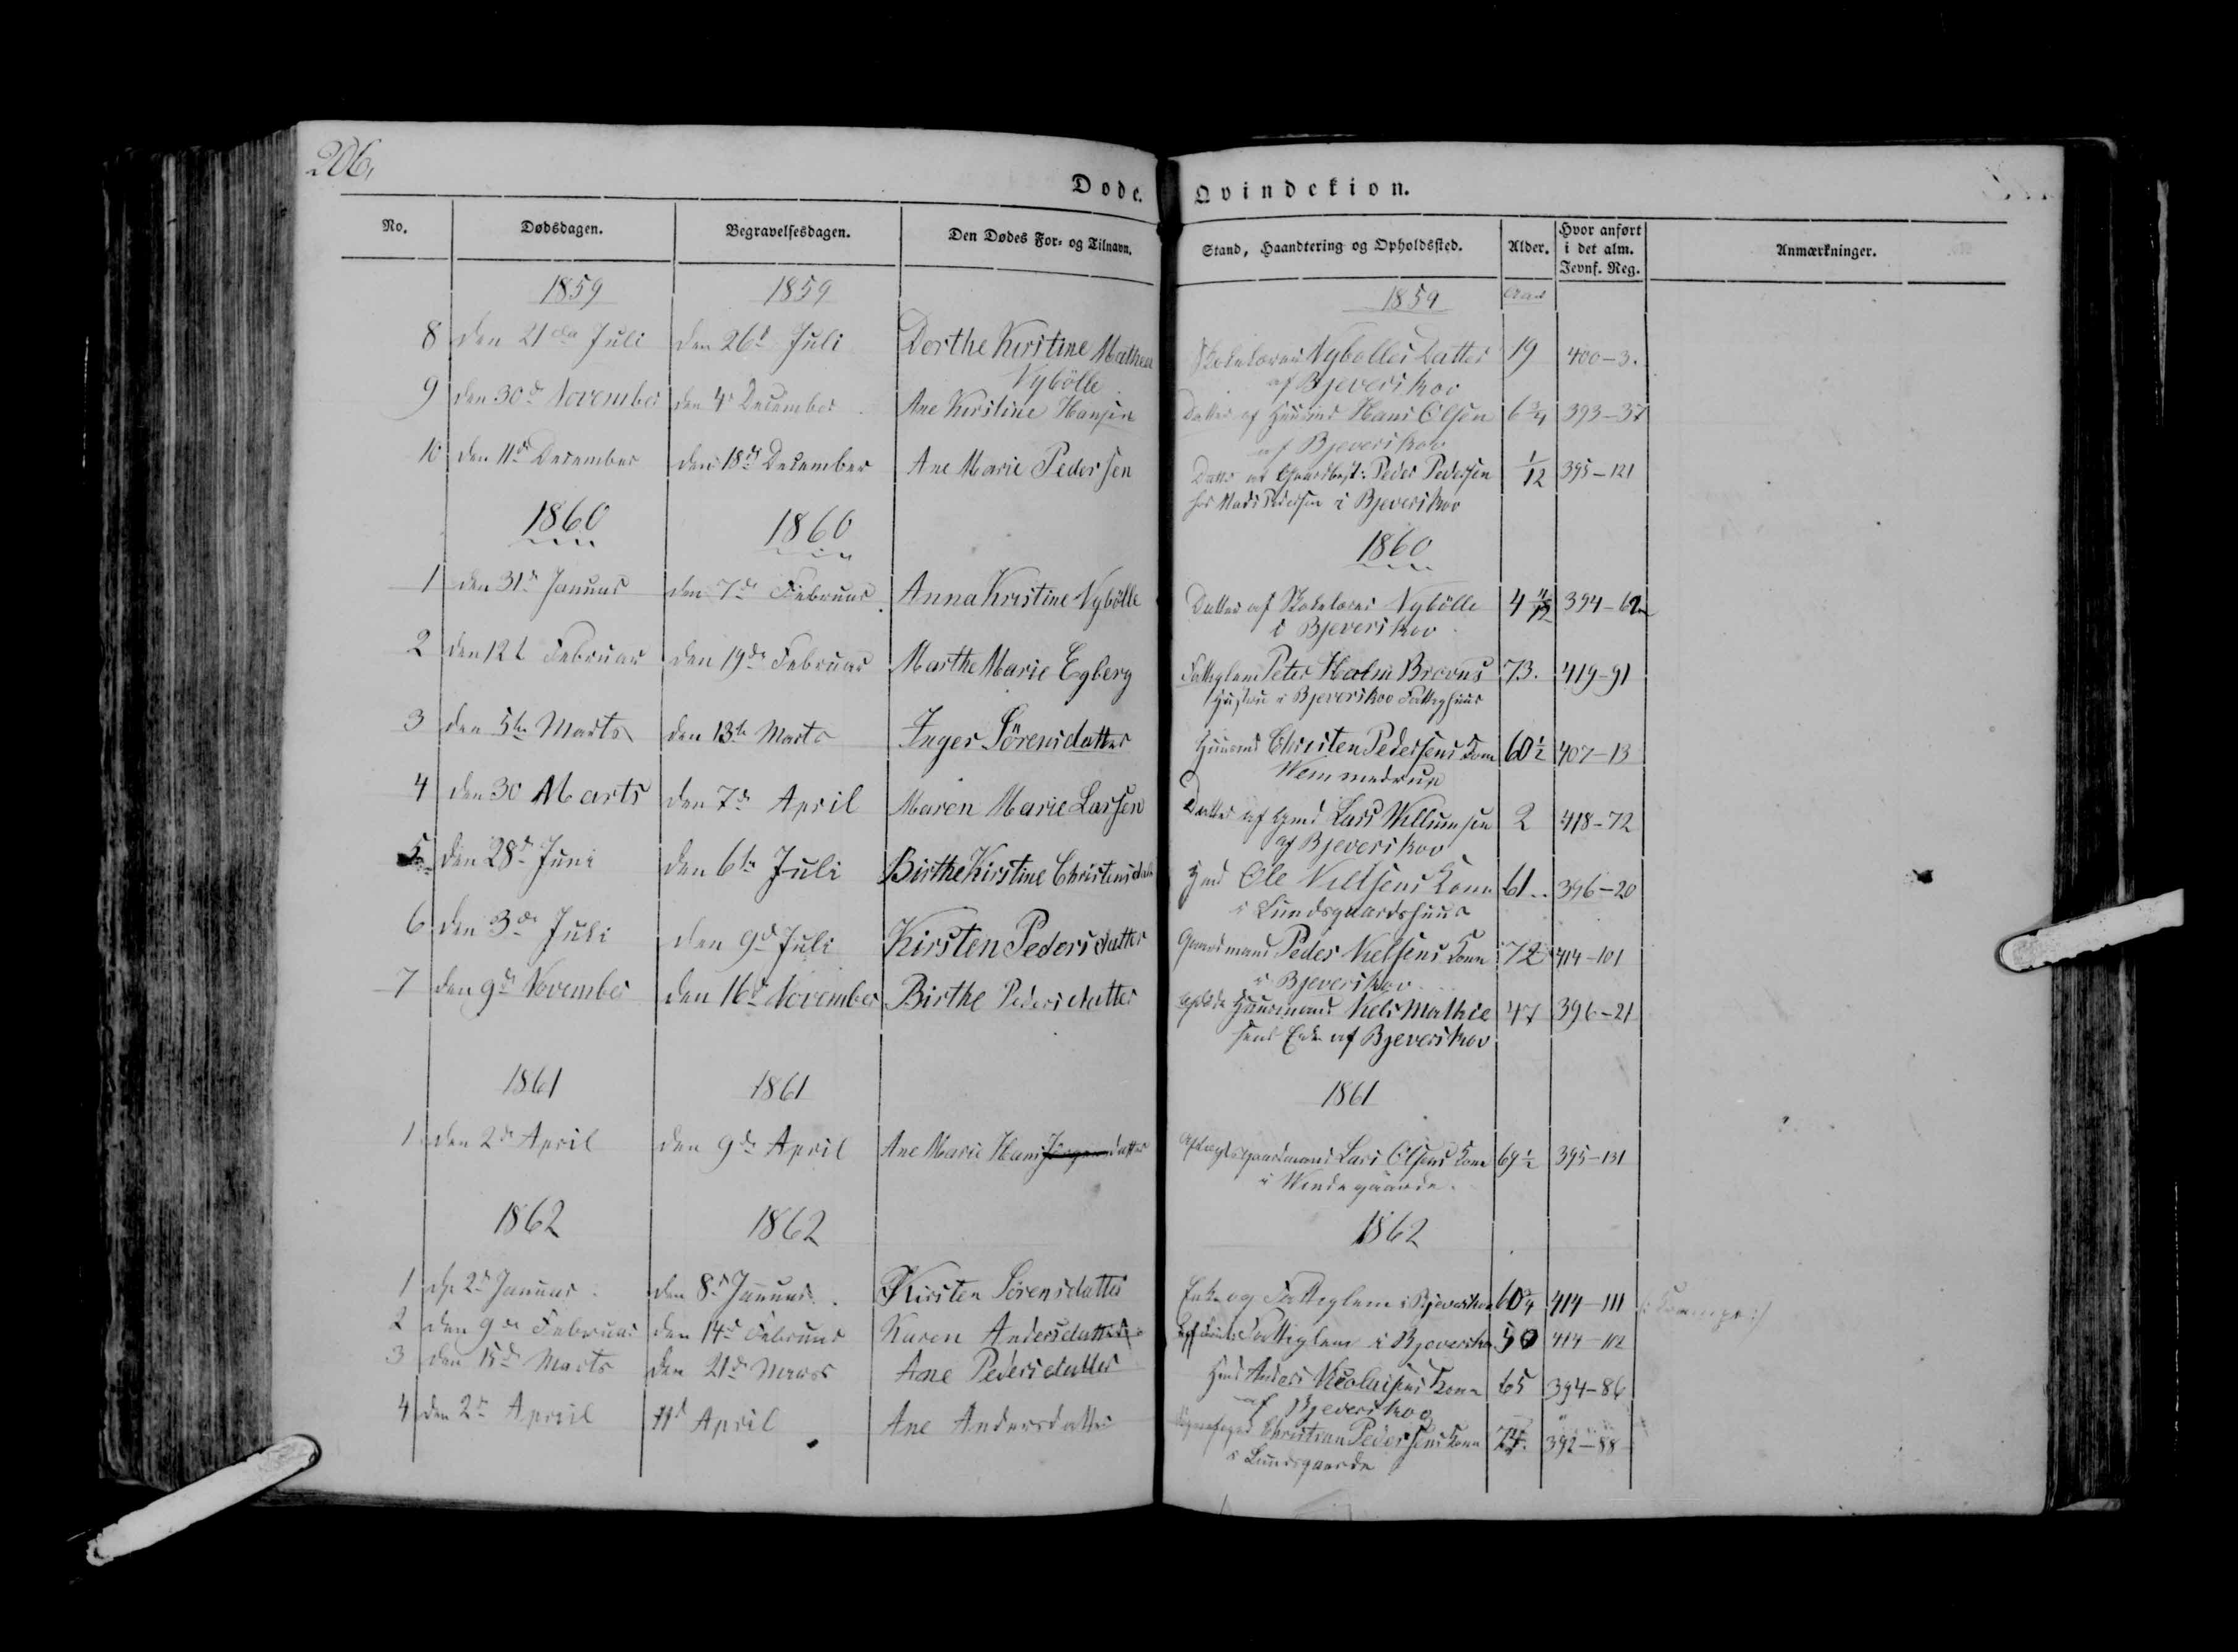 206,
Døde. Qvindekion.
No. Dødsdagen. Begravelsesdagen. Den Dødes For- og Tilnavn. Stand, Haandtering og Opholdssted. Alder. Hvor anført i det alm. Jevnf. Reg. Anmærkninger.
1859 1859 1859 Aar
8 den 21de Juli den 26d Juli Dorthe Kirstine Mathea Skolelærer Nybølles Datter 19 400-3.
Nybölle af Bjeverskov
9 den 30d November den 4d December Ane Kirstine Hansen Datter af Huusmd Hans Olsen 6 3/4 393-37
af Bjeverskov
10 den 11d December den 18d December Ane Marie Pedersen Datter af Gaardbest: Peder Pedersen 1/12 395-121
hos Mads Pedersen i Bjeverskov
1860 1860 1860
1 den 31d Januar den 7de Februar Anna Kristine Nybölle Datter af Skolelærer Nybölle 4 394-62
i Bjeverskov
2 den 12t Februar den 19de Februar Marthe Marie Egberg Fattiglem Peter Holm Brovns 73. 419-91
Hustru i Bjeverskov Fattighuus
3 den 5te Marts den 13te Marts Inger Sörensdatter Huusmd Christen Pedersens Kone 60 1/2 407-13
Wemmedrup
4 den 30 Marts den 7de April Maren Marie Larsen Datter af Hmd Lars Willumsen 2 418-72
af Bjeverskov
5 den 28d Juni den 6te Juli Birthe Kirstine Christensdatt Hmd Ole Nielsens Kone 61 396-20
i Lundsgaardshuus
6 den 3de Juli den 9d Juli Kirsten Pedersdatter Gaardmand Peder Nielsens Kone 72 414-101
i Bjeverskov
7 den 9de November den 16d November Birthe Pedersdatter Huusmand Niels Mathie 47 396-21
sens Enke af Bjeverskov
1861 1861 1861
1 den 2d April den 9de April Ane Marie Hans datter Aftægtsgaardmand Lars Olsens Kone 69 1/2 395-131
i Windegaarde.
1862 1862 1862
1 d. 2d Januar den 8d Januar Kirsten Sörensdatter Enke og Fattiglem i Bjeverskov 60 3/4 414-111
2 den 9de Februar den 14d Februar Karen Andersdatter Fattiglem i Bjeverskov 50 414-112
3 den 15d Marts den 21d Marts Ane Pedersdatter Hmd Anders Nicolaisens Kone 65 394-86
af Bjeverskov
4 den 2d April 11d April Ane Andersdatter Christian Pedersens Kone 74. 392-88
i Lundsgaarde